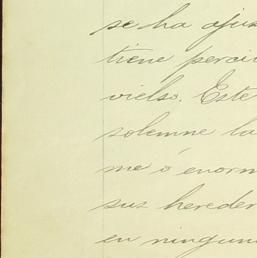 se ha ajus
tiene perci
vielso. Este
solemne la
me ó enorm
sus hereder
en ningun